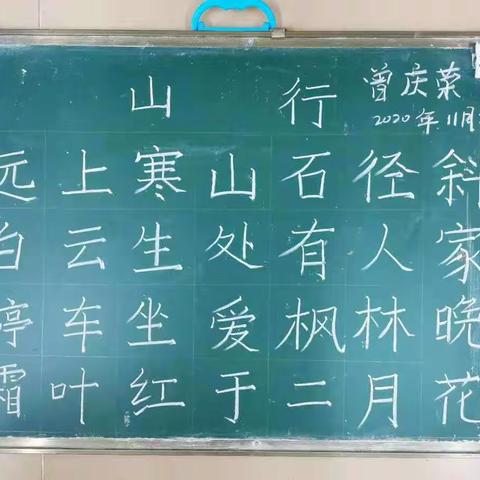 山行
曾庆荣
2020年11月
远上寒山石径斜
白云生处有人家
停车坐爱枫林晚
霜叶红于二月花